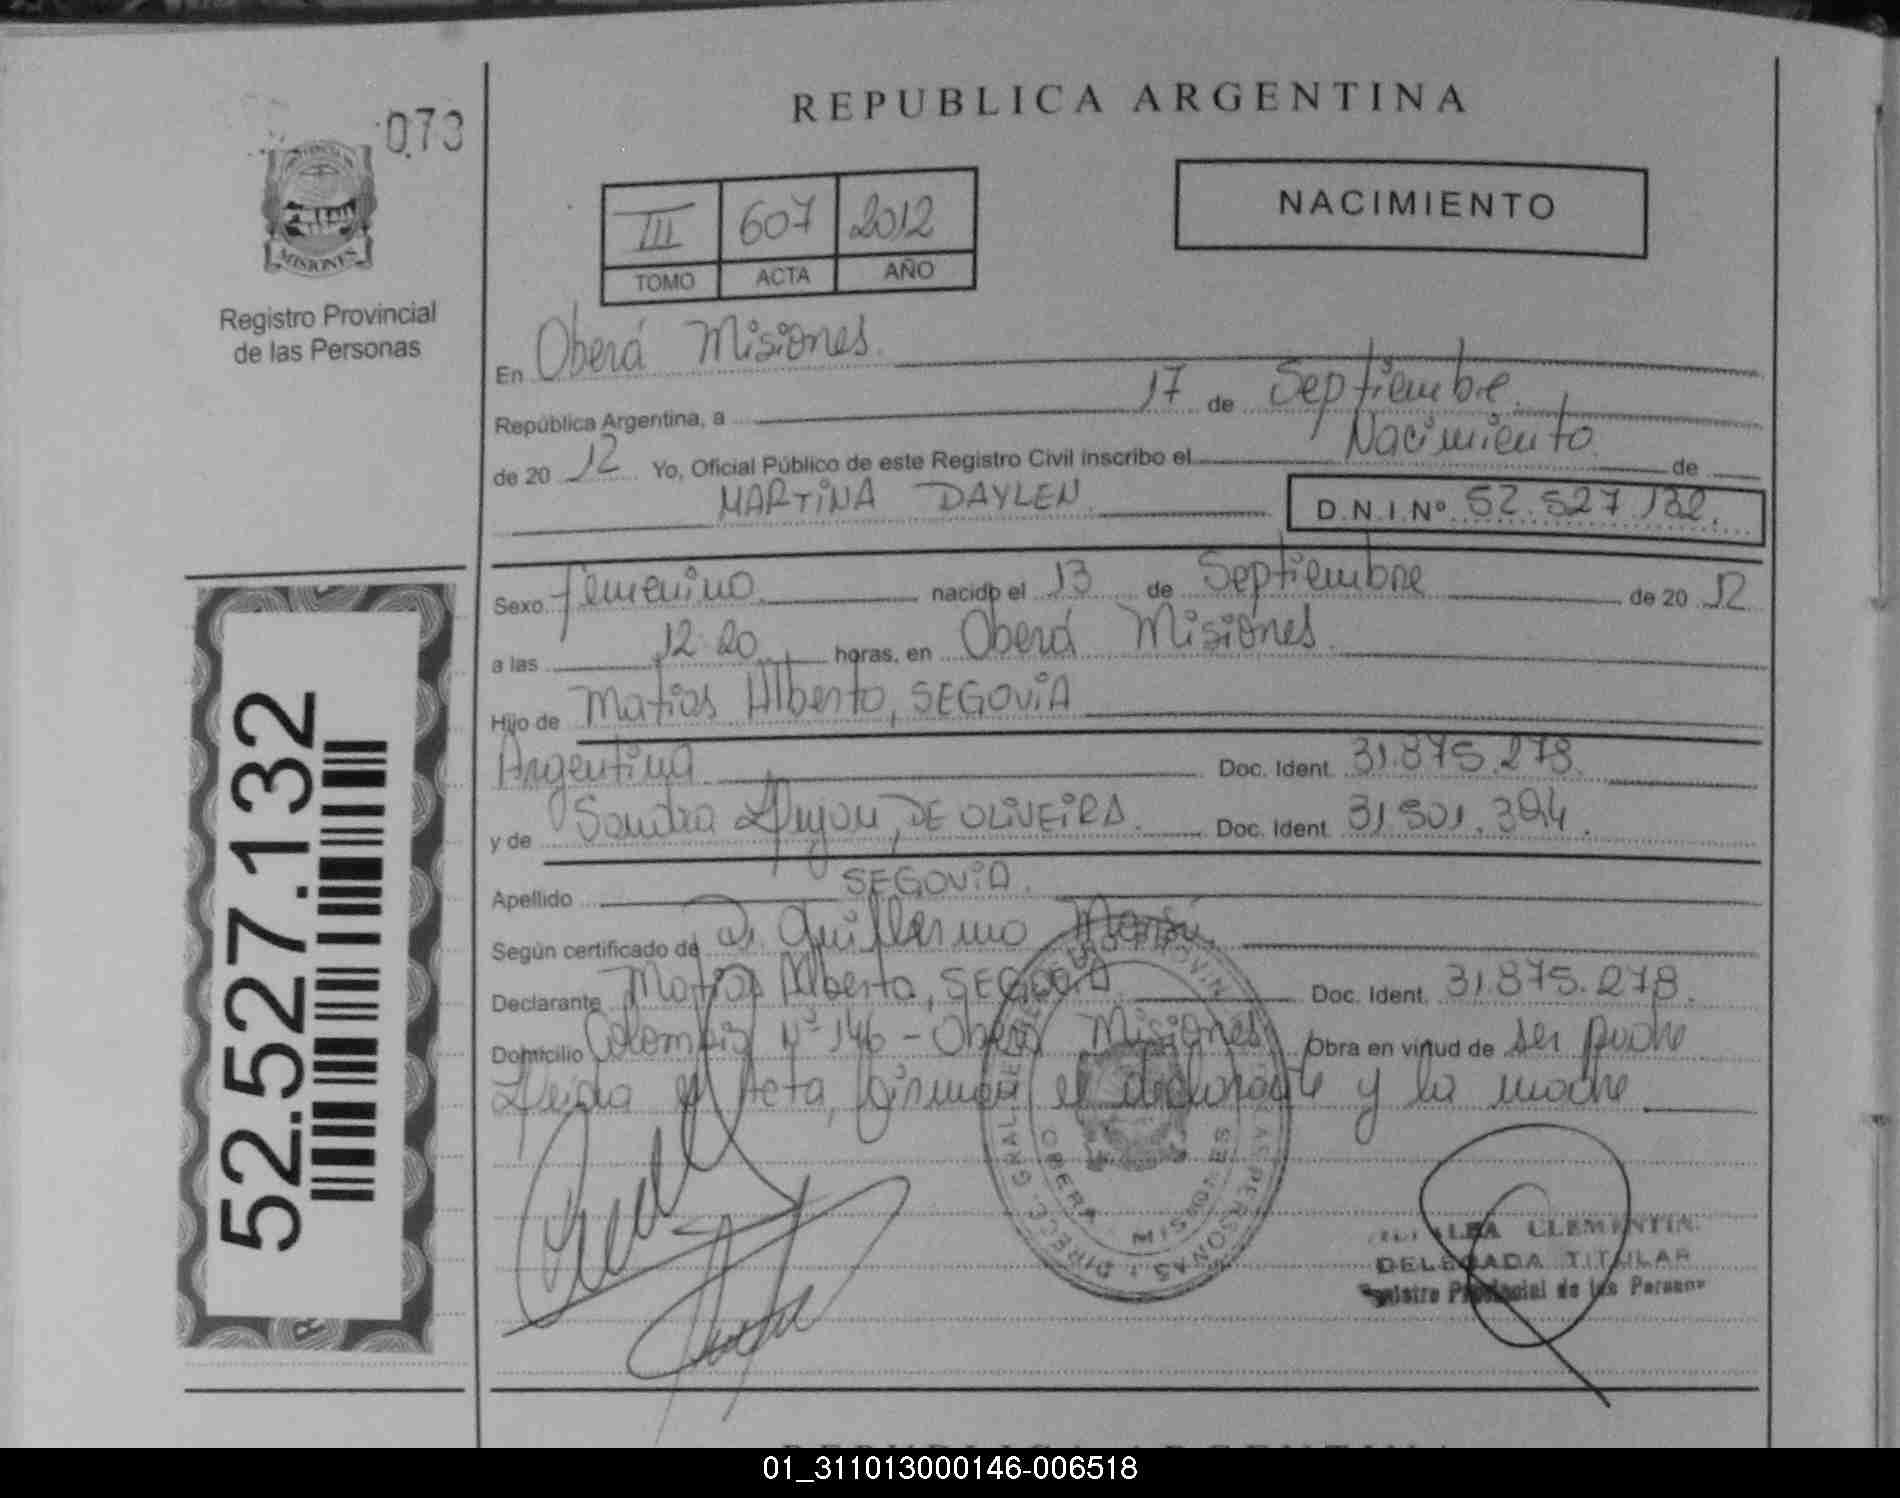 073
MISIONES
Registro Provincial
de las Personas
52.527.132
REPUBLICA ARGENTINA
NACIMIENTO
III 607 2012
TOMO ACTA AÑO
En Oberá Misiones.
República Argentina, a 17 de Septiembre
de 20 12 Yo, Oficial Público de este Registro Civil inscribo el Nacimiento de
MARTINA DAYLEN D.N.I.Nº 52.527.132.
Sexo femenino nacido el 13 de Septiembre de 20 12
a las 12:20 horas, en Oberá Misiones.
Hijo de Matias Alberto, SEGOVIA
Argentina Doc. Ident. 31.875.278.
y de Sandra DE OLIVEIRA. Doc. Ident. 31.501.324.
Apellido SEGOVIA.
Según certificado de Dr. Guillermo
Declarante Matias Alberto, SEGOVIA Doc. Ident. 31.875.278.
Domicilio Colombia Nº 146 - Oberá Misiones Obra en virtud de ser padre
Leida el Acta, firman el declarante y la madre
DIRECC. GRAL. PERSONAS
OBERA MISIONES
CLEMENTIN
DELEGADA TITULAR
Registro Provincial de las Personas
01_311013000146-006518